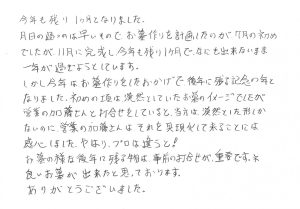 今年も残り1ヶ月となりました。
月日の経つのは早いもので、お墓作りを計画したのが7月の初め
でしたが、11月に完成し今年も残り1ヶ月で、なにも出来ないまま
一年が過ぎようとしている。
しかし今年はお墓作りをしたおかげで後年に残る記念の年と
なりました。初めの頃は漠然としていたお墓のイメージでしたが
営業の加藤さんとお打合せをしていると、当方は漠然とした形しか
ないのに、営業の加藤さんはそれを具現化して来ることには
感心しました。やはり、プロは違うと!
お墓の様な後年に残る物は、事前のお打合せが、重要です。
良いお墓が出来たと思っております。
ありがとうございました。